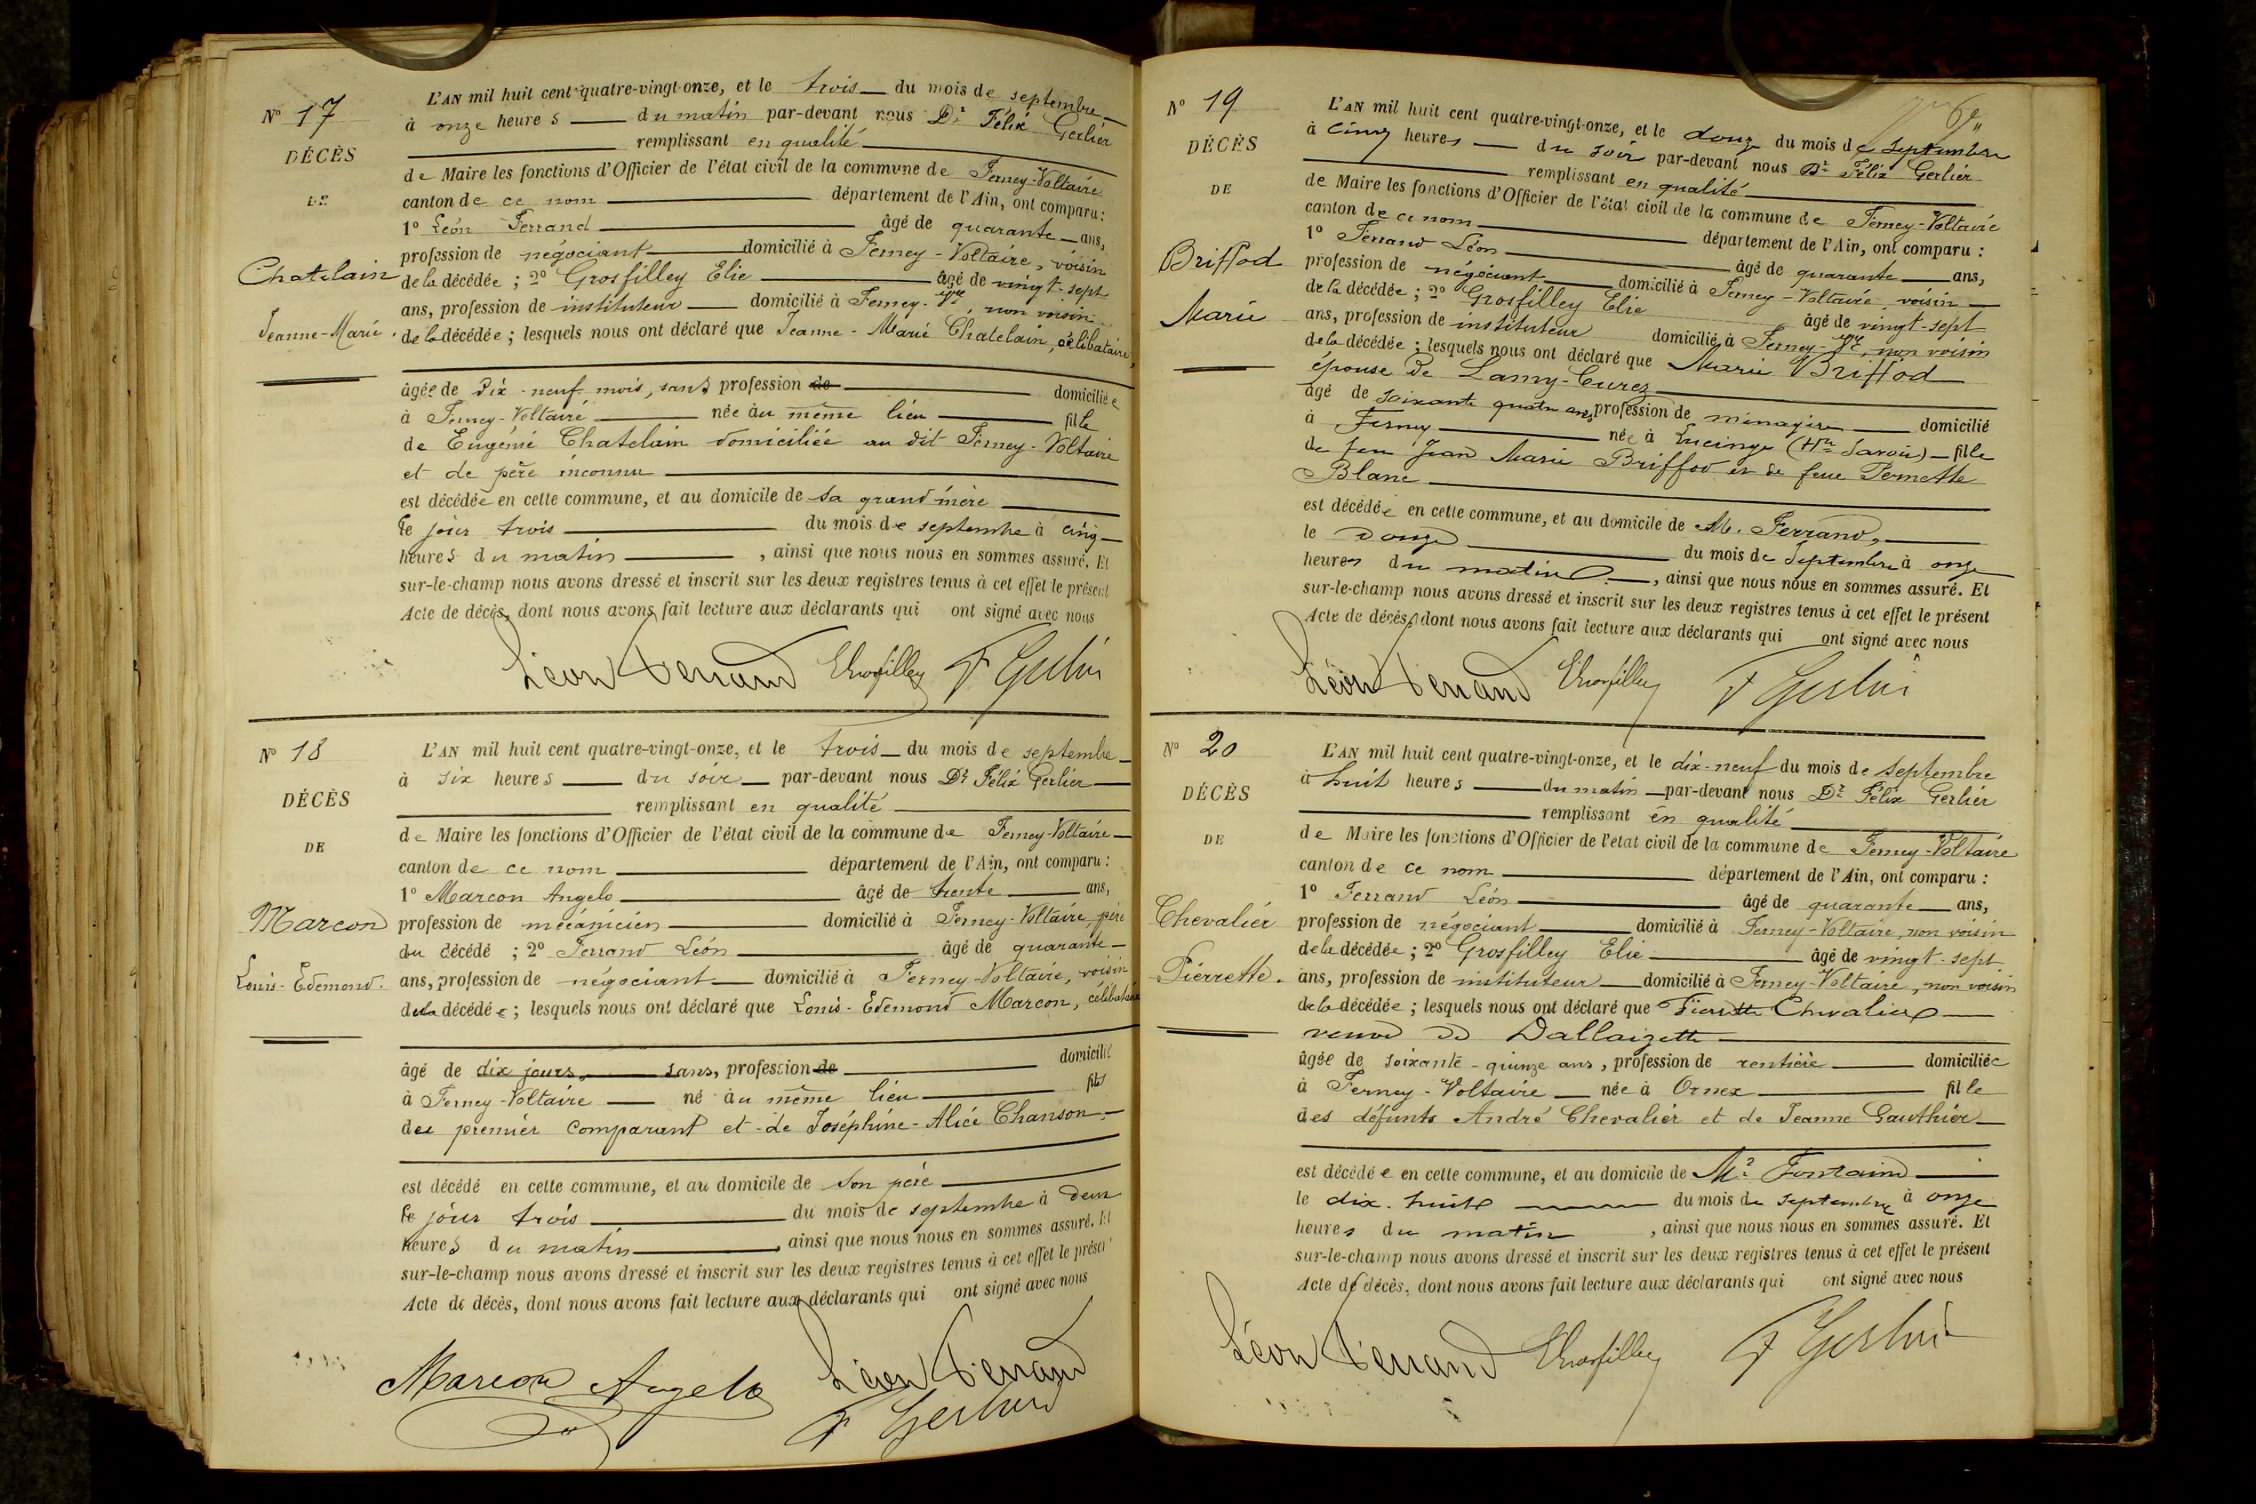 N° 17
DÉCÈS
DE
Chatelain
Jeanne-Marie.
L'AN mil huit cent quatre-vingt-onze, et le trois du mois de septembre
à onze heures du matin par-devant nous Dr Félix Gerlier
remplissant en qualité
de Maire les fonctions d'Officier de l'état civil de la commune de Ferney-Voltaire
canton de ce nom département de l'Ain, ont comparu :
1° Léon Ferrand âgé de quarante ans,
profession de négociant domicilié à Ferney-Voltaire, voisin
de la décédée ; 2° Grosfilley Elie âgé de vingt-sept
ans, profession de instituteur domicilié à Ferney-Vre, non voisin
de la décédée ; lesquels nous ont déclaré que Jeanne-Marie Chatelain, célibataire,
âgée de dix-neuf mois, sans profession de domiciliée
à Ferney-Voltaire née au même lieu fille
de Eugénie Chatelain domiciliée au dit Ferney-Voltaire
et de père inconnu
est décédée en cette commune, et au domicile de sa grand'mère
ce jour trois du mois de septembre à cinq
heures du matin , ainsi que nous nous en sommes assuré. Et
sur-le-champ nous avons dressé et inscrit sur les deux registres tenus à cet effet le présent
Acte de décès, dont nous avons fait lecture aux déclarants qui ont signé avec nous
Léon Ferrand EGrosfilley F Gerlier
N° 18
DÉCÈS
DE
Marcon
Louis-Edemond.
L'AN mil huit cent quatre-vingt-onze, et le trois du mois de septembre
à six heures du soir par-devant nous Dr Félix Gerlier
remplissant en qualité
de Maire les fonctions d'Officier de l'état civil de la commune de Ferney-Voltaire
canton de ce nom département de l'Ain, ont comparu :
1° Marcon Angelo âgé de trente ans,
profession de mécanicien domicilié à Ferney-Voltaire, père
du décédé ; 2° Ferrand Léon âgé de quarante
ans, profession de négociant domicilié à Ferney-Voltaire, voisin
de la décédée ; lesquels nous ont déclaré que Louis-Edemond Marcon, célibataire
âgé de dix jours, sans, profession de domicilié
à Ferney-Voltaire né au même lieu fils
du premier comparant et de Joséphine-Alice Chanson
est décédé en cette commune, et au domicile de son père
ce jour trois du mois de septembre à deux
heures du matin , ainsi que nous nous en sommes assuré. Et
sur-le-champ nous avons dressé et inscrit sur les deux registres tenus à cet effet le présent
Acte de décès, dont nous avons fait lecture aux déclarants qui ont signé avec nous
Marcon Angelo Léon Ferrand
F Gerlier
N° 19
DÉCÈS
DE
Briffod
Marie
L'AN mil huit cent quatre-vingt-onze, et le douze du mois de septembre
à cinq heures du soir par-devant nous Dr Félix Gerlier
remplissant en qualité
de Maire les fonctions d'Officier de l'état civil de la commune de Ferney-Voltaire
canton de ce nom département de l'Ain, ont comparu :
1° Ferrand Léon âgé de quarante ans,
profession de négociant domicilié à Ferney-Voltaire voisin
de la décédée ; 2° Grosfilley Elie âgé de vingt-sept
ans, profession de instituteur domicilié à Ferney-Vre, non voisin
de la décédée ; lesquels nous ont déclaré que Marie Briffod
épouse de Lamy-Curez
âgé de soixante quatre ans, profession de ménagère domicilié
à Ferney née à Lucinge (Hte Savoie) fille
de feu Jean Marie Briffod et de feue Pernette
Blanc
est décédée en cette commune, et au domicile de M. Ferrand,
le douze du mois de Septembre à onze
heures du matin , ainsi que nous nous en sommes assuré. Et
sur-le-champ nous avons dressé et inscrit sur les deux registres tenus à cet effet le présent
Acte de décès, dont nous avons fait lecture aux déclarants qui ont signé avec nous
Léon Ferrand EGrosfilley F Gerlier
N° 20
DÉCÈS
DE
Chevalier
Pierrette.
L'AN mil huit cent quatre-vingt-onze, et le dix-neuf du mois de septembre
à huit heures du matin par-devant nous Dr Félix Gerlier
remplissant en qualité
de Maire les fonctions d'Officier de l'état civil de la commune de Ferney-Voltaire
canton de ce nom département de l'Ain, ont comparu :
1° Ferrand Léon âgé de quarante ans,
profession de négociant domicilié à Ferney-Voltaire, non voisin
de la décédée ; 2° Grosfilley Elie âgé de vingt-sept
ans, profession de instituteur domicilié à Ferney-Voltaire, non voisin
de la décédée ; lesquels nous ont déclaré que Pierrette Chevalier
veuve de Dallaizette
âgée de soixante-quinze ans, profession de rentière domiciliée
à Ferney-Voltaire née à Ornex fille
des défunts André Chevalier et de Jeanne Gauthier
est décédée en cette commune, et au domicile de Mr Fontaine
le dix-huit du mois de septembre à onze
heures du matin , ainsi que nous nous en sommes assuré. Et
sur-le-champ nous avons dressé et inscrit sur les deux registres tenus à cet effet le présent
Acte de décès, dont nous avons fait lecture aux déclarants qui ont signé avec nous
Léon Ferrand EGrosfilley F Gerlier